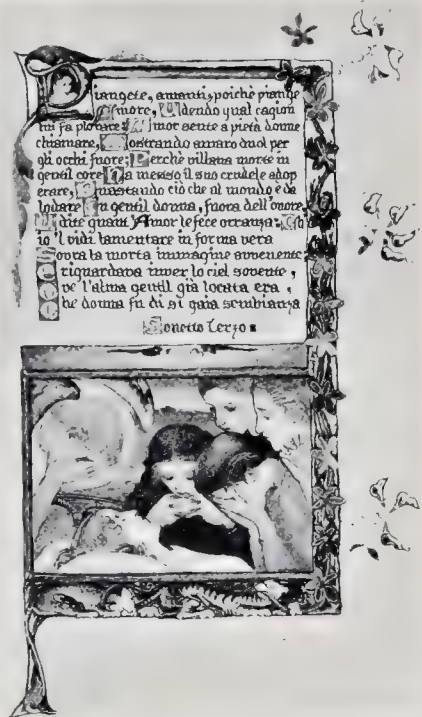 Piangete, amanti, poichè piange
Amore, Udendo qual cagion
lui fa plorare: Amor sente a pietà donne
chiamare, Mostrando amaro duol per
gli occhi fuore; Perchè villana morte in
gentil core Ha messo il suo crudele adop
erare, Guastando ciò che al mondo è da
lodare In gentil donna, fuora dell'onore.
Udite quant'Amor le fece orranza: Ch'
io 'l vidi lamentare in forma vera
Sovra la morta immagine avvenente:
E riguardava inver lo ciel sovente,
Ove l'alma gentil già locata era,
Che donna fu di sì gaia sembianza
Sonetto Terzo